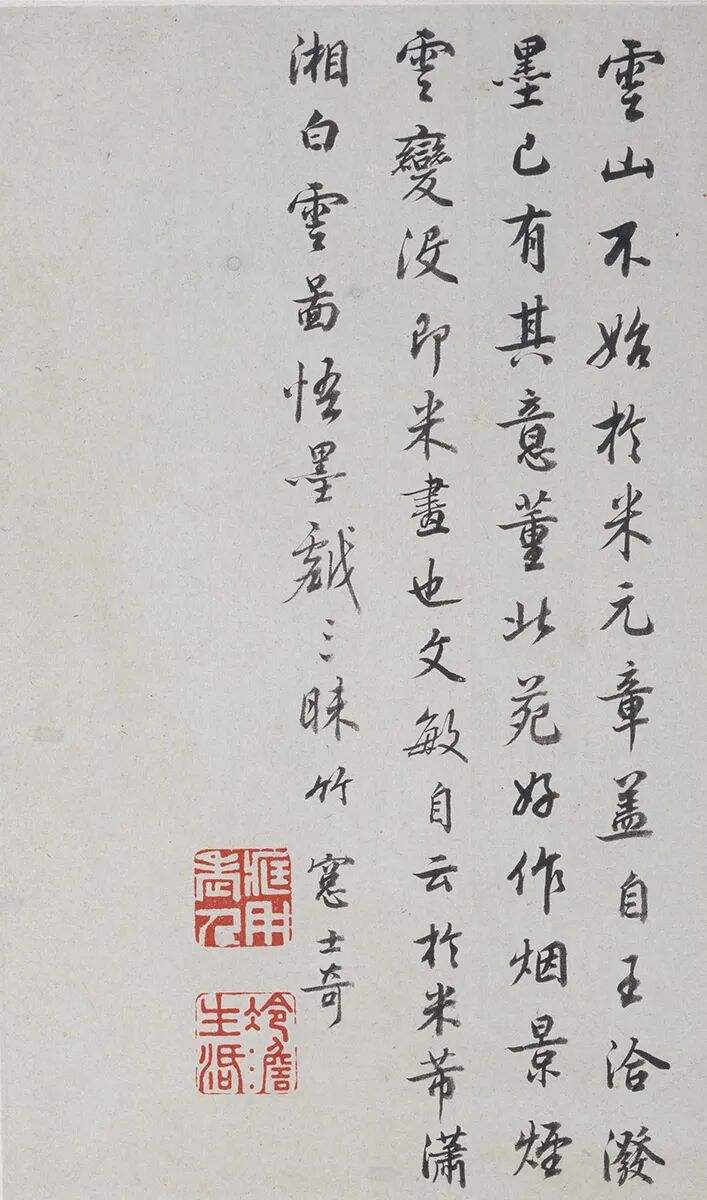 雲山不始於米元章盖自王洽潑
墨已有其意董北苑好作烟景煙
雲變沒即米畫也文敏自云於米芾瀟
湘白雲啚悟墨戱三昧竹窻士奇
藏用老人
冷澹生活